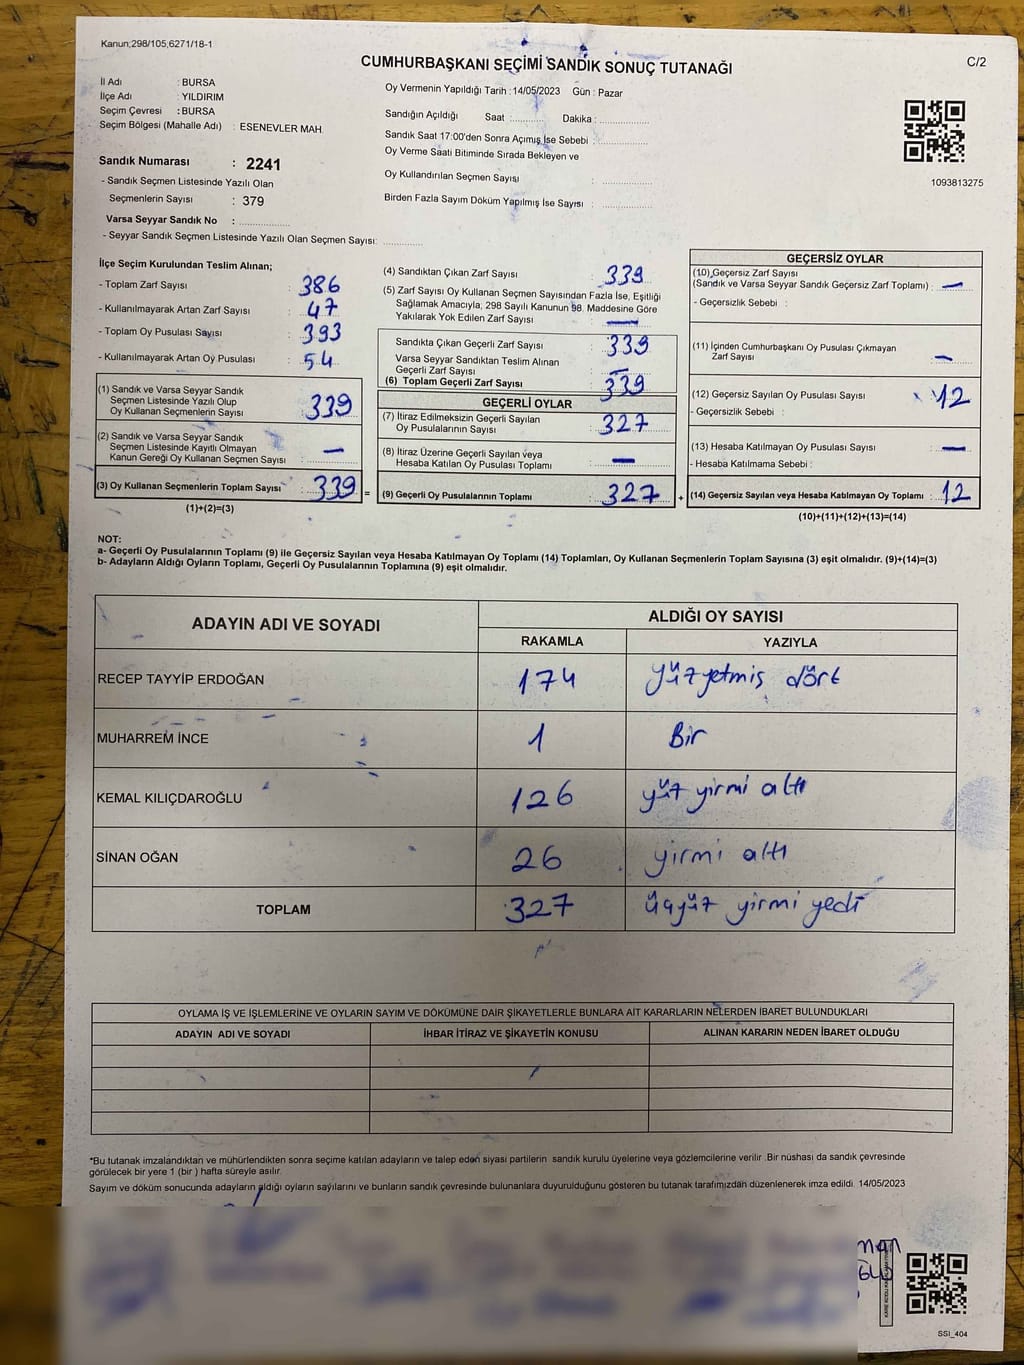 Kanun;298/105;6271/18-1
C/2
CUMHURBAŞKANI SEÇİMİ SANDIK SONUÇ TUTANAĞI
İl Adı : BURSA
İlçe Adı : YILDIRIM
Seçim Çevresi : BURSA
Seçim Bölgesi (Mahalle Adı) : ESENEVLER MAH.
Sandık Numarası : 2241
- Sandık Seçmen Listesinde Yazılı Olan
Seçmenlerin Sayısı : 379
Varsa Seyyar Sandık No : ..............
- Seyyar Sandık Seçmen Listesinde Yazılı Olan Seçmen Sayısı: ............
Oy Vermenin Yapıldığı Tarih : 14/05/2023 Gün : Pazar
Sandığın Açıldığı Saat : ............ Dakika : ..............
Sandık Saat 17:00'den Sonra Açımış İse Sebebi : ..............
Oy Verme Saati Bitiminde Sırada Bekleyen ve
Oy Kullandırılan Seçmen Sayısı : ..............
Birden Fazla Sayım Döküm Yapılmış İse Sayısı : ..............
1093813275
İlçe Seçim Kurulundan Teslim Alınan;
- Toplam Zarf Sayısı : 386
- Kullanılmayarak Artan Zarf Sayısı : 47
- Toplam Oy Pusulası Sayısı : 393
- Kullanılmayarak Artan Oy Pusulası : 54
(1) Sandık ve Varsa Seyyar Sandık
Seçmen Listesinde Yazılı Olup
Oy Kullanan Seçmenlerin Sayısı : 339
(2) Sandık ve Varsa Seyyar Sandık
Seçmen Listesinde Kayıtlı Olmayan
Kanun Gereği Oy Kullanan Seçmen Sayısı : —
(3) Oy Kullanan Seçmenlerin Toplam Sayısı : 339 =
(1)+(2)=(3)
(4) Sandıktan Çıkan Zarf Sayısı : 339
(5) Zarf Sayısı Oy Kullanan Seçmen Sayısından Fazla İse, Eşitliği
Sağlamak Amacıyla, 298 Sayılı Kanunun 98. Maddesine Göre
Yakılarak Yok Edilen Zarf Sayısı : —
Sandıkta Çıkan Geçerli Zarf Sayısı : 339
Varsa Seyyar Sandıktan Teslim Alınan
Geçerli Zarf Sayısı : —
(6) Toplam Geçerli Zarf Sayısı : 339
GEÇERLİ OYLAR
(7) İtiraz Edilmeksizin Geçerli Sayılan
Oy Pusulalarının Sayısı : 327
(8) İtiraz Üzerine Geçerli Sayılan veya
Hesaba Katılan Oy Pusulası Toplamı : —
(9) Geçerli Oy Pusulalarının Toplamı : 327 +
GEÇERSİZ OYLAR
(10) Geçersiz Zarf Sayısı
(Sandık ve Varsa Seyyar Sandık Geçersiz Zarf Toplamı) : —
- Geçersizlik Sebebi :
(11) İçinden Cumhurbaşkanı Oy Pusulası Çıkmayan
Zarf Sayısı : —
(12) Geçersiz Sayılan Oy Pusulası Sayısı : 12
- Geçersizlik Sebebi :
(13) Hesaba Katılmayan Oy Pusulası Sayısı : —
- Hesaba Katılmama Sebebi :
(14) Geçersiz Sayılan veya Hesaba Katılmayan Oy Toplamı : 12
(10)+(11)+(12)+(13)=(14)
NOT:
a- Geçerli Oy Pusulalarının Toplamı (9) ile Geçersiz Sayılan veya Hesaba Katılmayan Oy Toplamı (14) Toplamları, Oy Kullanan Seçmenlerin Toplam Sayısına (3) eşit olmalıdır. (9)+(14)=(3)
b- Adayların Aldığı Oyların Toplamı, Geçerli Oy Pusulalarının Toplamına (9) eşit olmalıdır.
ADAYIN ADI VE SOYADI
ALDIĞI OY SAYISI
RAKAMLA YAZIYLA
RECEP TAYYİP ERDOĞAN 174 yüzyetmiş dört
MUHARREM İNCE 1 Bir
KEMAL KILIÇDAROĞLU 126 yüz yirmi altı
SİNAN OĞAN 26 yirmi altı
TOPLAM 327 üçyüz yirmi yedi
OYLAMA İŞ VE İŞLEMLERİNE VE OYLARIN SAYIM VE DÖKÜMÜNE DAİR ŞİKAYETLERLE BUNLARA AİT KARARLARIN NELERDEN İBARET BULUNDUKLARI
ADAYIN ADI VE SOYADI İHBAR İTİRAZ VE ŞİKAYETİN KONUSU ALINAN KARARIN NEDEN İBARET OLDUĞU
*Bu tutanak imzalandıktan ve mühürlendikten sonra seçime katılan adayların ve talep eden siyasi partilerin sandık kurulu üyelerine veya gözlemcilerine verilir .Bir nüshası da sandık çevresinde
görülecek bir yere 1 (bir ) hafta süreyle asılır.
Sayım ve döküm sonucunda adayların aldığı oyların sayılarını ve bunların sandık çevresinde bulunanlara duyurulduğunu gösteren bu tutanak tarafımızdan düzenlenerek imza edildi. 14/05/2023
SSI_404